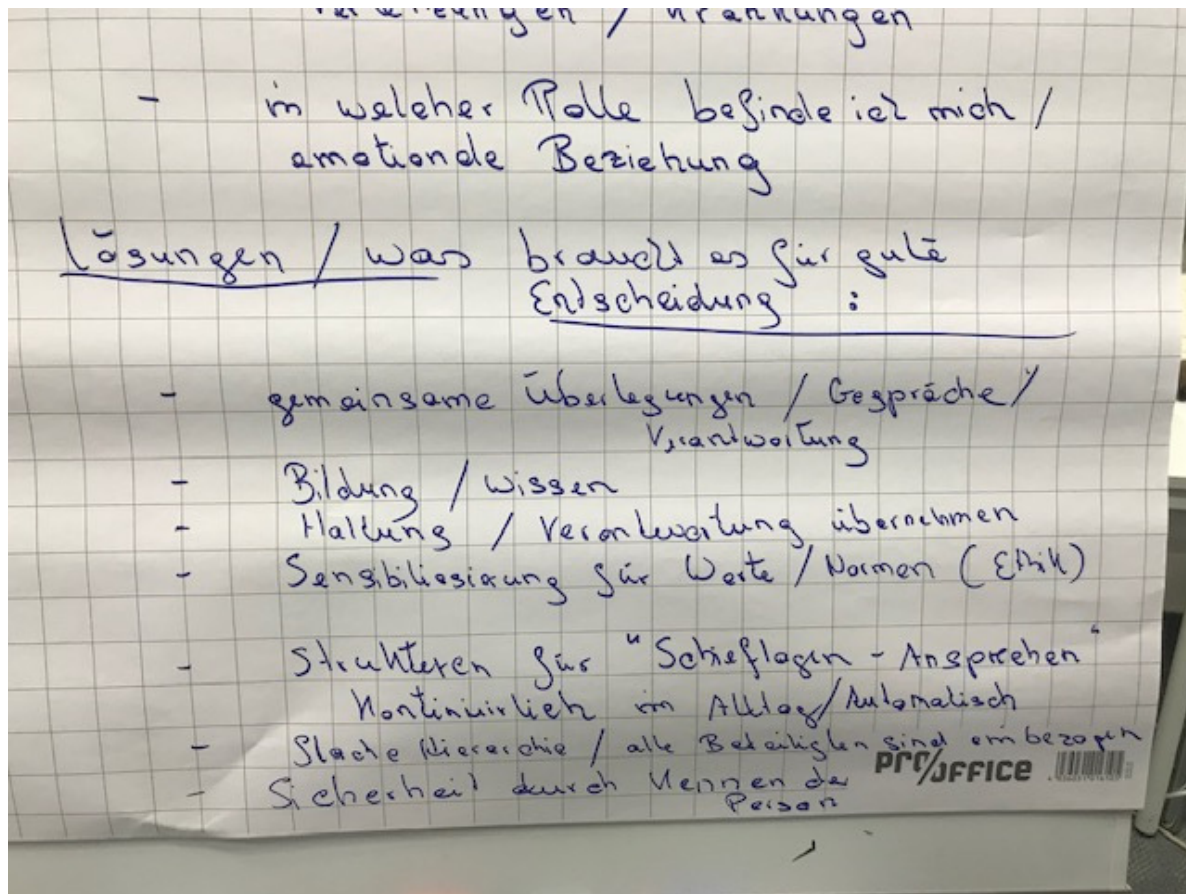 / Kränkungen
- in welcher Rolle befinde ich mich /
emotionale Beziehung
Lösungen / was braucht es für gute
Entscheidung :
- gemeinsame Überlegungen / Gespräche /
Verantwortung
- Bildung / Wissen
- Haltung / Verantwortung übernehmen
- Sensibiliesierung für Werte / Normen (Ethik)
- Strukteren für "Schieflagen - Ansprechen"
Kontinuirlich im Alltag / Automatisch
- flache Hierarchie / alle Beteiligten sind einbezogen
- Sicherheit durch Kennen der
Person
PRO/OFFICE